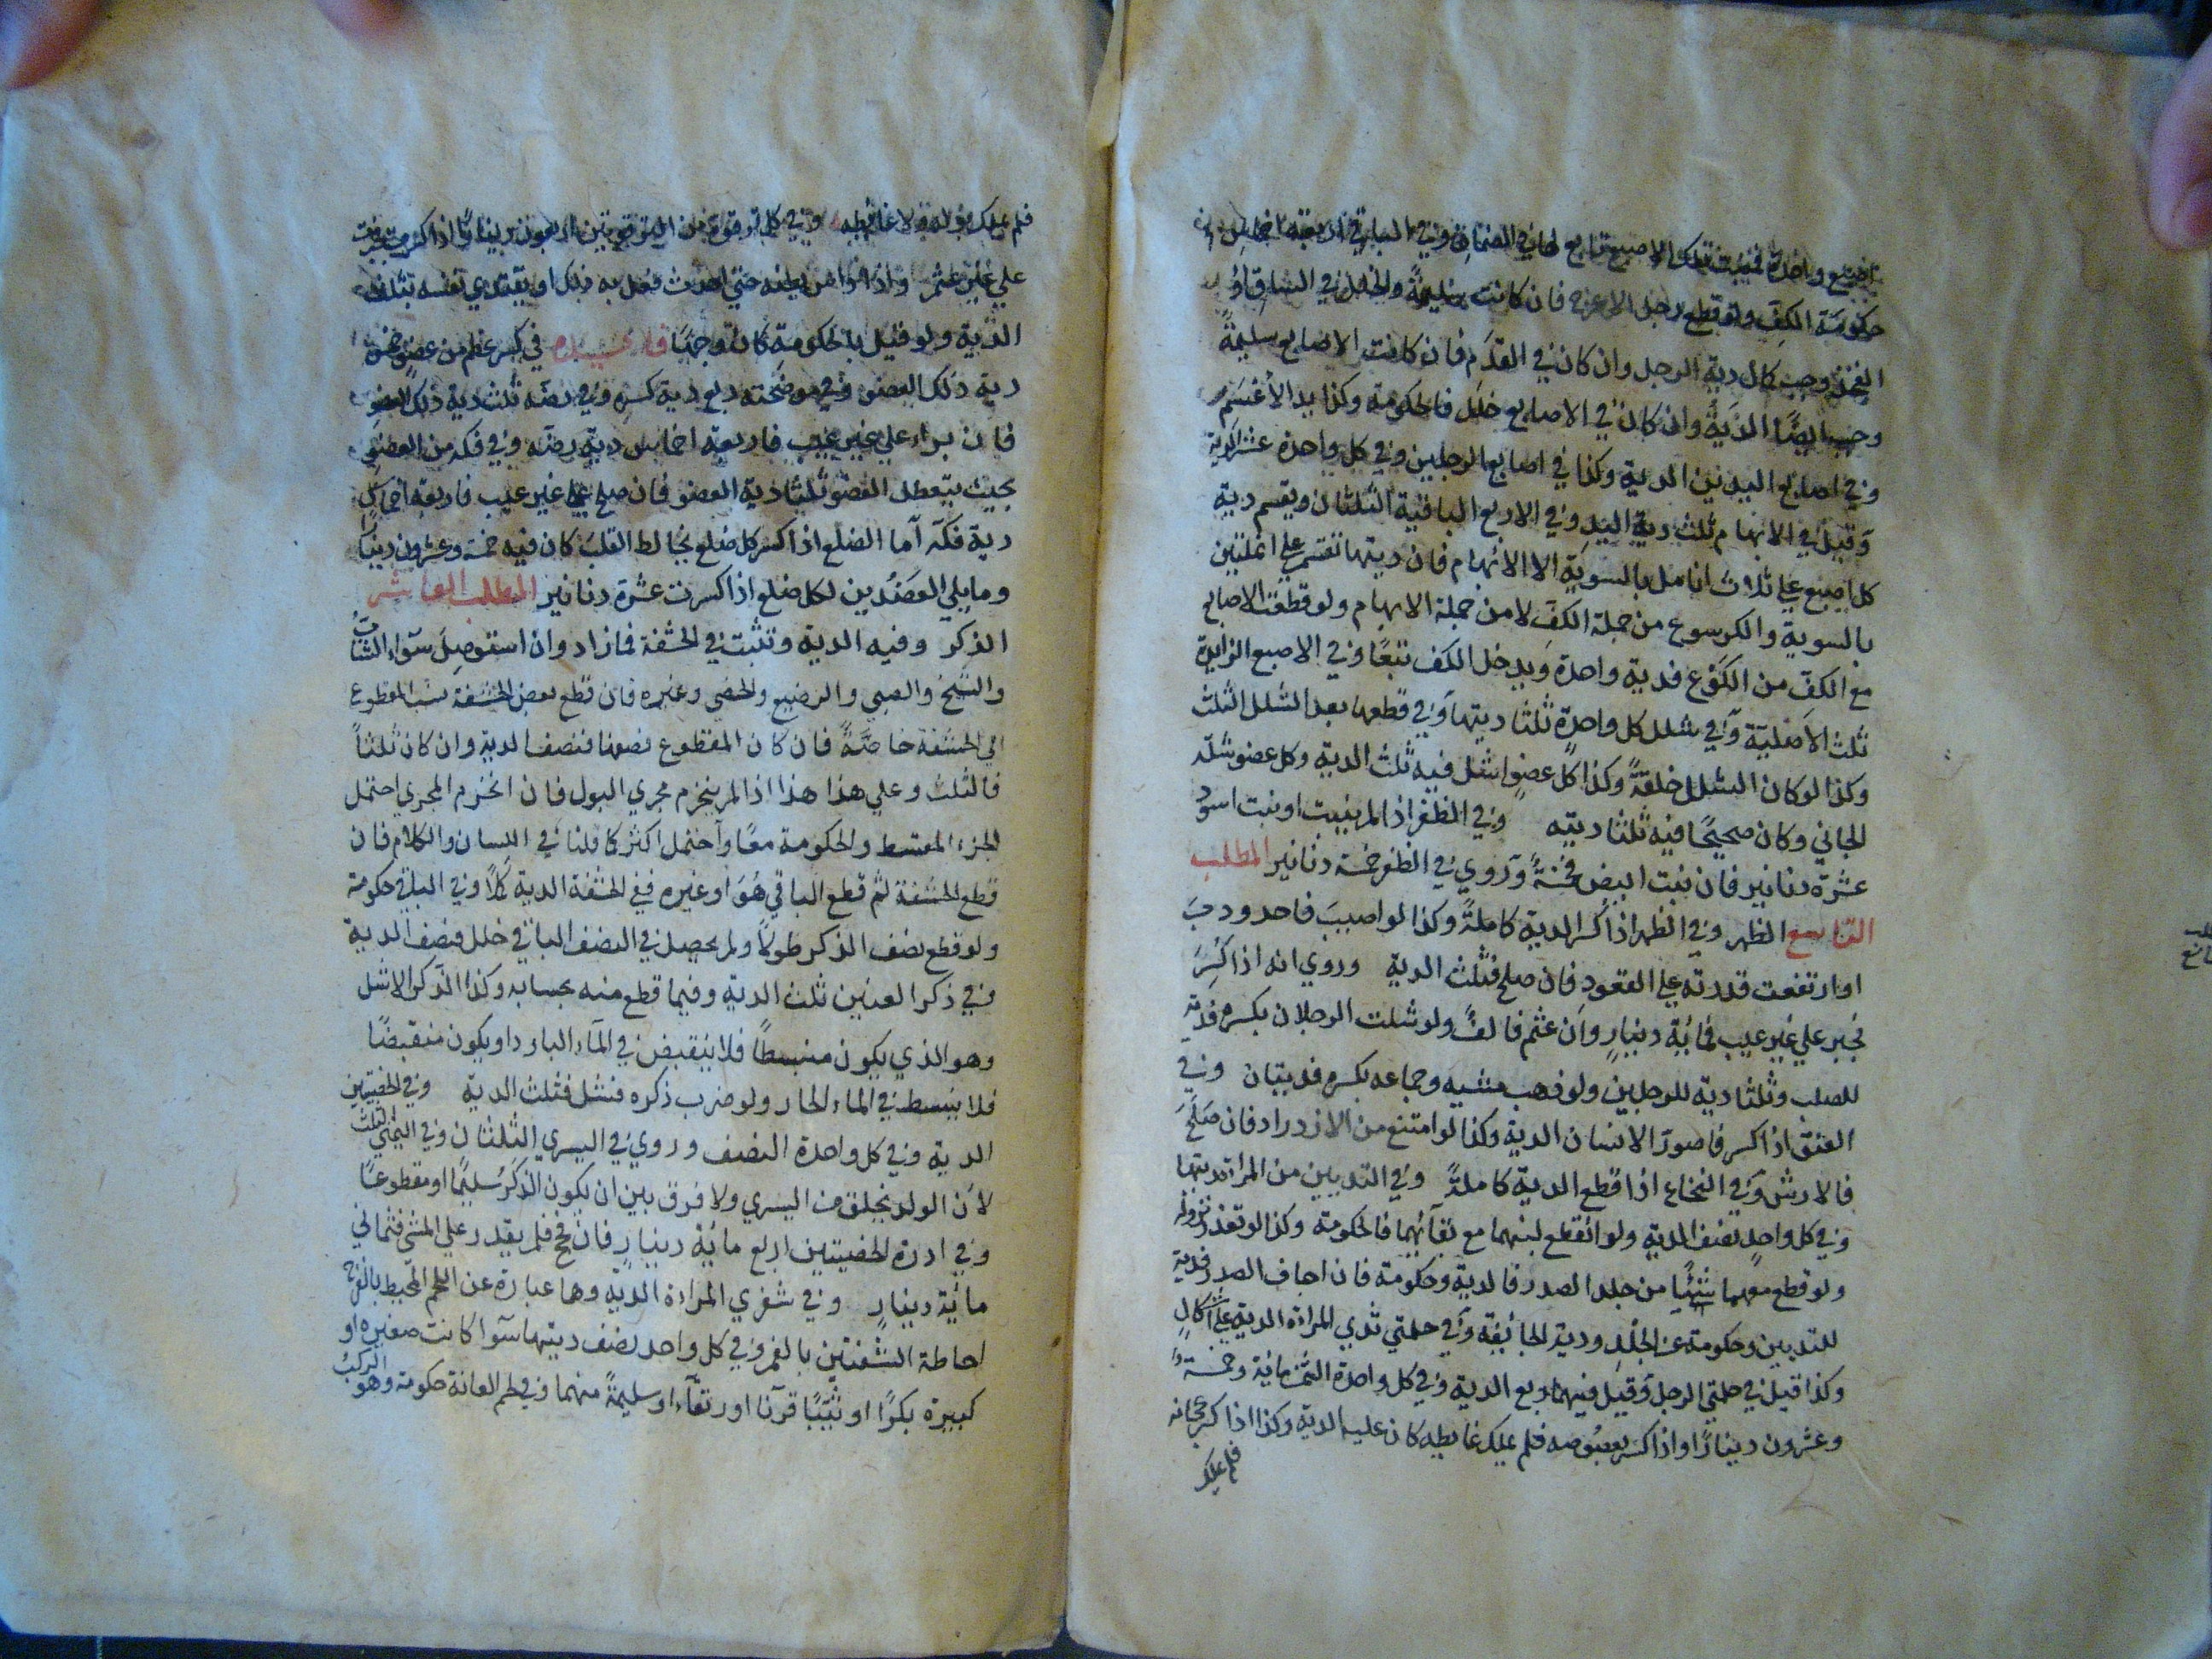 اصبع واحدة فنبت تلك الاصبع تابع لها في الضمان وفي الباقي اربعة اخماس
حكومة الكف ولو قطع رجل الاعرج فان كانت سليمة والخلل في الساق او
الفخذ وجب كمال دية الرجل وان كان في القدم فان كانت الاصابع سليمة
وجب ايضا الدية وان كان في الاصابع خلل فالحكومة وكذا يد الأعسم
وفي اصابع اليدين الدية وكذا في اصابع الرجلين وفي كل واحدة عشر الدية
وقيل في الابهام ثلث دية اليد وفي الاربع الباقية الثلثان ويقسم دية
كل اصبع على ثلاث انامل بالسوية الا الابهام فان ديتها تقسم على انملتين
بالسوية والكرسوع من جملة الكف لا من جملة الابهام ولو قطعت الاصابع
مع الكف من الكوع فدية واحدة ويدخل الكف تبعا وفي الاصبع الزايدة
ثلث الاصلية وفي شلل كل واحدة ثلثا ديتها وفي قطعها بعد الشلل الثلث
وكذا لو كان الشلل خلقة وكذا كل عضو اشل فيه ثلث الدية وكل عضو شله
الجاني وكان صحيحا فيه ثلثا ديته وفي الظفر اذا لم ينبت او نبت اسود
عشرة دنانير فان نبت ابيض فخمسة وروي في الظفر خمسة دنانير المطلب
التاسع الظهر وفي الظهر اذا كسر الدية كاملة وكذا لو اصيب فاحدودب
او ارتفعت قدرته على القعود فان صلح فثلث الدية وروي انه اذا كسر
فجبر على غير عيب فمائة دينار وان عثم فالف ولو شلت الرجلان بكسره فدية
للصلب وثلثا دية للرجلين ولو ذهب مشيه وجماعه بكسره فديتان وفي
العنق اذا كسر فاصور الانسان الدية وكذا لو امتنع من الازدراد فان صلح
فالارش وفي النخاع اذا قطع الدية كاملة وفي الثديين من المراة ديتها
وفي كل واحد نصف الدية ولو انقطع لبنهما مع بقائهما فالحكومة وكذا لو تعذر نزوله
ولو قطع معهما شيئا من جلد الصدر فالدية وحكومة فان اجاف الصدر فدية
للثديين وحكومة عن الجلد ودية الجائفة وفي حلمتي ثدي المراة الدية على اشكال
وكذا قيل في حلمتي الرجل وقيل فيهما ربع الدية وفي كل واحدة الثمن مائة وخمسة
وعشرون دينارا واذا كسر بعصوصه فلم يملك غايطه كان عليه الدية وكذا اذا كسر عجانه
فلم يملك
فلم يملك بوله ولا غائطه وفي كل ترقوة من الترقوتين اربعون دينارا اذا كسرت فجبرت
على غير عثم واذا داس بطنه حتى احدث فعل به ذلك او يفتدي نفسه بثلث
الدية ولو قيل بالحكومة كان وجها في كسر عظم من عضو خمس
دية ذلك العضو وفي موضحته ربع دية كسره وفي رضه ثلث دية ذلك العضو
فان براء على غير عيب فاربعة اخماس دية رضه وفي فكه من العضو
بحيث يتعطل العضو ثلثا دية العضو فان صلح على غير عيب فاربعة اخماس
دية فكه اما الضلع اذا كسر كل ضلع يخالط القلب كان فيه خمسة وعشرون دينارا
وما يلي العضدين لكل ضلع اذا كسرت عشرة دنانير المطلب العاشر
الذكر وفيه الدية وتثبت في الحشفة فما زاد وان استوصل سواء الشاب
والشيخ والصبي والرضيع والخصي وغيره فان قطع بعض الحشفة نسب المقطوع
الى الحشفة خاصة فان كان المقطوع نصفها فنصف الدية وان كان ثلثا
فالثلث وعلى هذا هذا اذا لم ينخرم مجرى البول فان انخرم المجرى احتمل
الجزء المقسط والحكومة معا واحتمل اكثر كما قلنا في اللسان والكلام فان
قطع الحشفة ثم قطع الباقي هو او غيره ففي الحشفة الدية كملا وفي الباقي حكومة
ولو قطع نصف الذكر طولا ولم يحصل في النصف الباقي خلل فنصف الدية
وفي ذكر العنين ثلث الدية وفيما قطع منه بحسابه وكذا الذكر الاشل
وهو الذي يكون منبسطا فلا ينقبض في الماء البارد او يكون منقبضا
فلا ينبسط في الماء الحار ولو ضرب ذكره فشل فثلث الدية وفي الخصيتين
الدية وفي كل واحدة النصف وروي في اليسرى الثلثان وفي اليمنى الثلث
لان الولد يخلق من اليسرى ولا فرق بين ان يكون الذكر سليما او مقطوعا
وفي ادرة الخصيتين اربع مائة دينار فان فحج فلم يقدر على المشي فثماني
مائة دينار وفي شفري المراة الدية وهما عبارة عن اللحم المحيط بالفرج
احاطة الشفتين بالفم وفي كل واحد نصف ديتها سوا كانت صغيرة او
كبيرة بكرا او ثيبا قرنا او رتقاء او سليمة منهما وفي لحم العانة حكومة وهو الركب